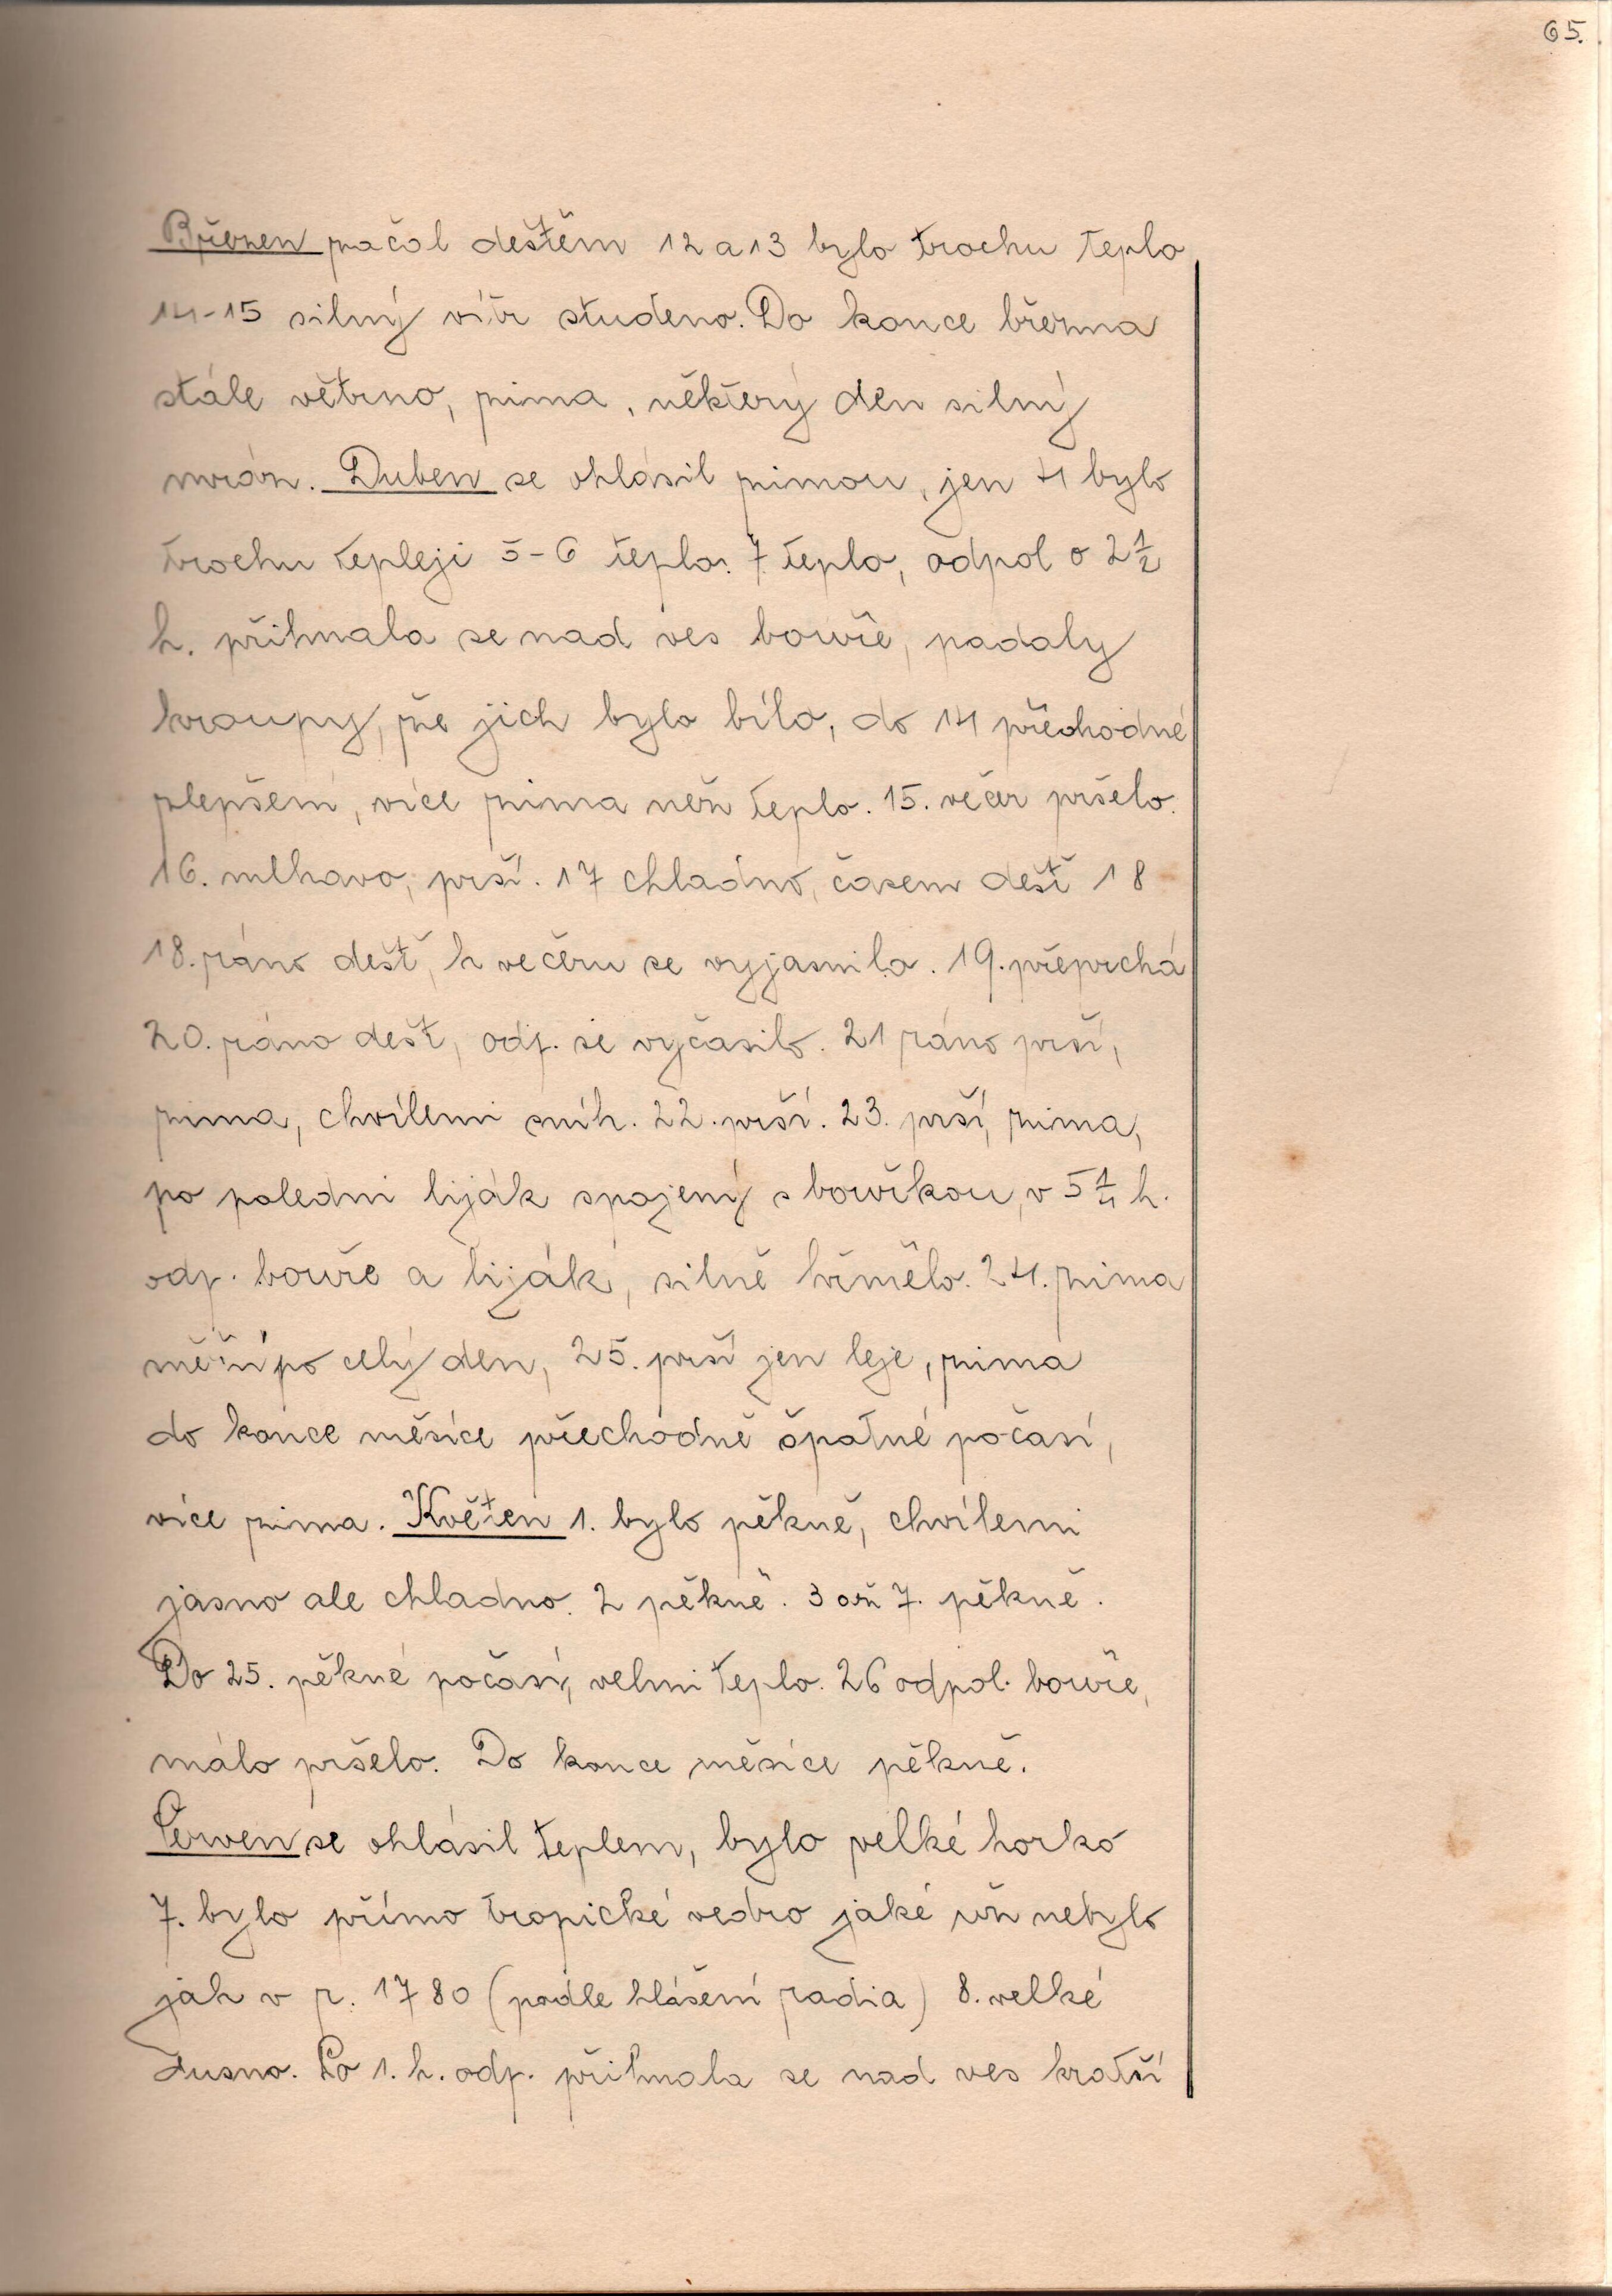 65.
Březen začal deštěm 12 a 13 bylo trochu teplo
14-15 silný vítr studeno. Do konce března
stále větrno, zima, některý den silný
mráz. Duben se ohlásil zimou, jen 4 bylo
trochu tepleji 5-6 teplo. 7. teplo, odpol o 2 1/2
h. přihnala se nad ves bouře, padaly
kroupy, že jich bylo bílo, do 14 přechodné
zlepšení, více zima než teplo. 15. večer pršelo.
16. mlhavo, prší. 17 chladno, časem dešť 18
18. ráno dešť, k večeru se vyjasnilo. 19. přeprchá
20. ráno dešť, odp. se vyčasilo. 21 ráno prší,
zima, chvílemi sníh. 22. prší. 23. prší, zima,
po poledni liják spojený s bouřkou, v 5 1/4 h.
odp. bouře a liják, silně hřmělo. 24. zima
mží po celý den, 25. prší jen leje, zima
do konce měsíce přechodně špatné počasí,
více zima. Květen 1. bylo pěkně, chvílemi
jasno ale chladno. 2 pěkně. 3 až 7. pěkně.
Do 25. pěkné počasí, velmi teplo. 26 odpol. bouře,
málo pršelo. Do konce měsíce pěkně.
Červen se ohlásil teplem, bylo velké horko
7. bylo přímo tropické vedro jaké už nebylo
jak v r. 1780 (podle hlášení radia) 8. velké
dusno. Po 1. h. odp. přihnala se nad ves kratší